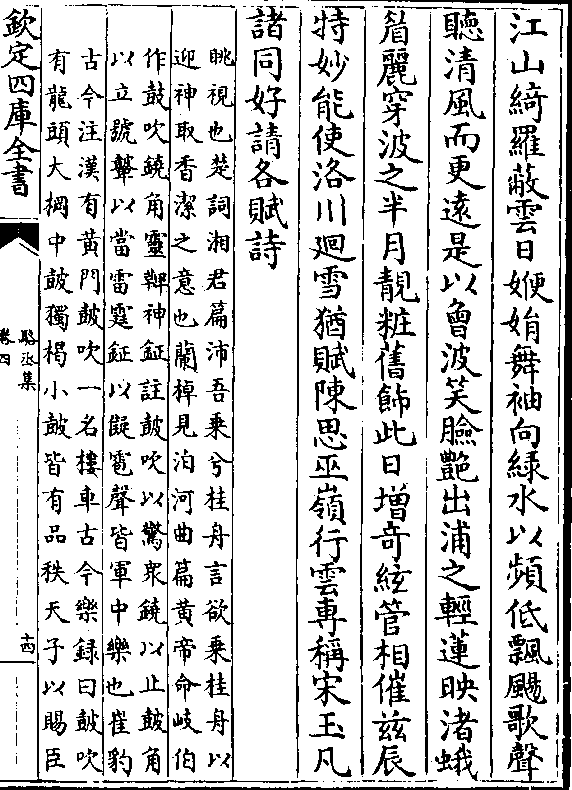 江山綺羅蔽雲日㛹娟舞袖向緑水以頻低飄颺歌聲
聴清風而更逺是以㑹波笑臉艷出浦之輕蓮映渚蛾
眉麗穿波之半月靚粧舊飾此日增竒絃管相催兹辰
特妙能使洛川廻雪猶賦陳思巫嶺行雲専稱宋玉凡
諸同好請各賦詩
眺視也楚詞湘君篇沛吾乗兮桂舟言欲乗桂舟以
迎神取香潔之意也蘭棹見泊河曲篇黄帝命岐伯
作鼓吹鐃角靈鞞神鉦註鼓吹以驚衆鐃以止鼓角
以立號鼙以當雷霆鉦以擬雹聲皆軍中樂也崔豹
古今注漢有黄門鼓吹一名樓車古今樂録曰鼓吹
有龍頭大棡中鼓獨楬小鼓皆有品秩天子以賜臣
欽定四庫全書
駱丞集
卷四
十四